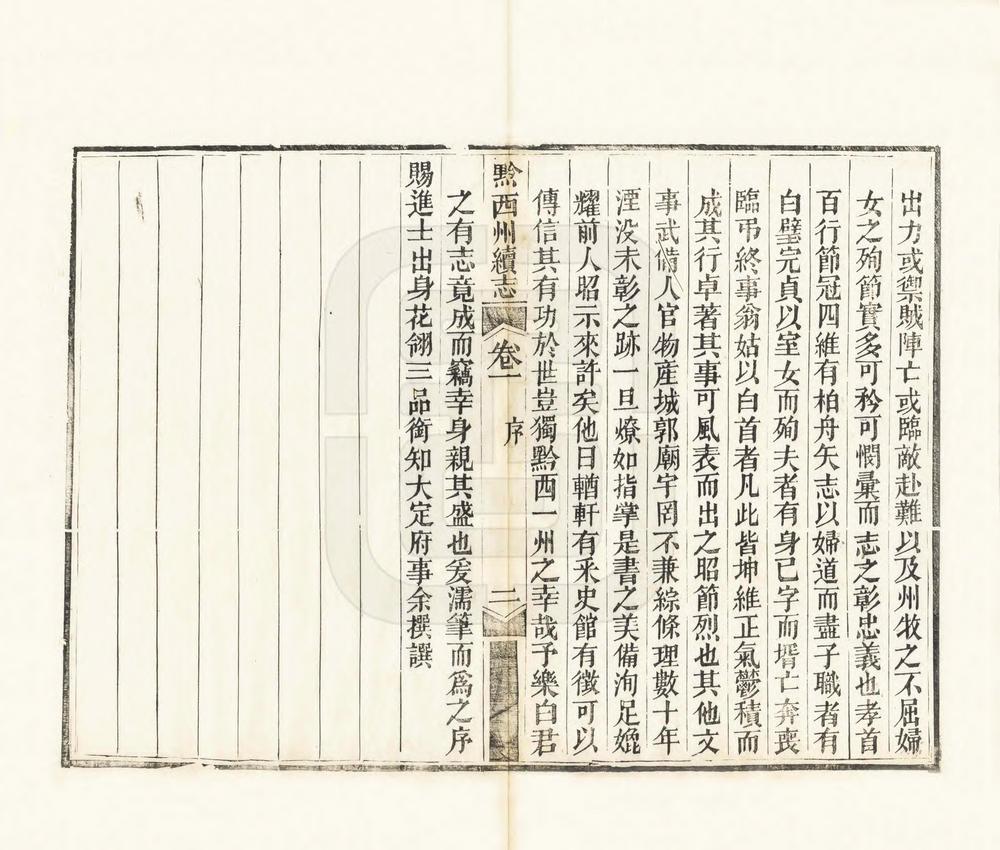 出力或禦賊陣亡或臨敵赴難以及州牧之不屈婦
女之殉節實多可矜可憫彙而志之彰忠義也孝首
百行節冠四維有柏舟矢志以婦道而盡子職者有
白璧完貞以室女而殉夫者有身已字而壻亡奔喪
臨弔終事翁姑以白首者凡此皆坤維正氣鬱積而
成其行卓著其事可風表而出之昭節烈也其他文
事武備人官物產城郭廟宇罔不兼綜條理數十年
湮没未彰之跡一旦燎如指掌是書之美備洵足媲
耀前人昭示來許矣他日輶軒有采史館有徵可以
傳信其有功於世豈獨黔西一州之幸哉予樂白君
黔西州續志 卷一 序 二
之有志竟成而竊幸身親其盛也爰濡筆而爲之序
賜進士出身花翎三品銜知大定府事余撰譔